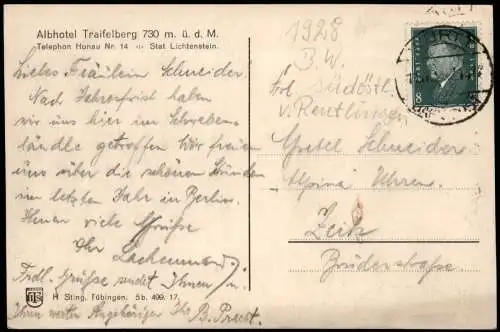 Albhotel Traifelberg 730 m. ü. d. M.
Telephon Honau Nr. 14 -:- Stat. Lichtenstein.
1928
B.W.
südöstl.
v. Reutlingen
8
Liebes Fräulein Schneider!
Nach Jahresfrist haben
wir uns hier im Schwaben-
ländle getroffen. Wir freuen
uns über die schönen Stunden
im letzten Jahr in Berlin.
Ihnen viele Grüße
Ihr
Frdl. Grüße sendet Ihnen u.
Ihren werten Angehörigen Ihr B. Precht.
Gretel Schneider
Alpina Uhren.
Zeitz
Brüderstraße
H Sting, Tübingen. 5b. 499. 17.